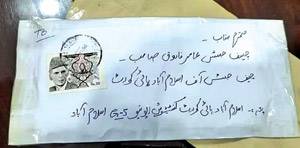 To
محترم جناب -
چیف جسٹس عامر فاروق صاحب -
چیف جسٹس آف اسلام آباد ہائی کورٹ
اسلام آباد ہائی کورٹ کانسٹیٹیوشن ایونیو G-5 اسلام آباد